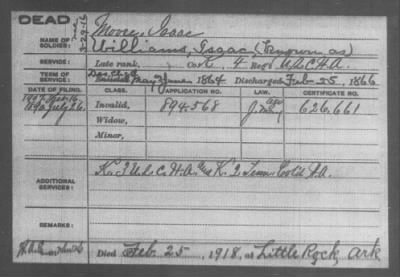 DEAD
3-29-16
NAME OF SOLDIER: Moore, Isaac
Williams, Isaac (known as)
SERVICE: Late rank, Co. K, 4 Reg't U.S.C.H.A.
TERM OF SERVICE: Enlisted May 1864 Discharged Feb. 25, 1866
DATE OF FILING. CLASS. APPLICATION NO. LAW. CERTIFICATE NO.
1892 July 26. Invalid, 894.568 626.661
Widow,
Minor,
ADDITIONAL SERVICES: K. 3 U.S.C.H.A. K. 2 Tenn. Cold H.A.
REMARKS:
Died Feb. 25, 1918, at Little Rock Ark